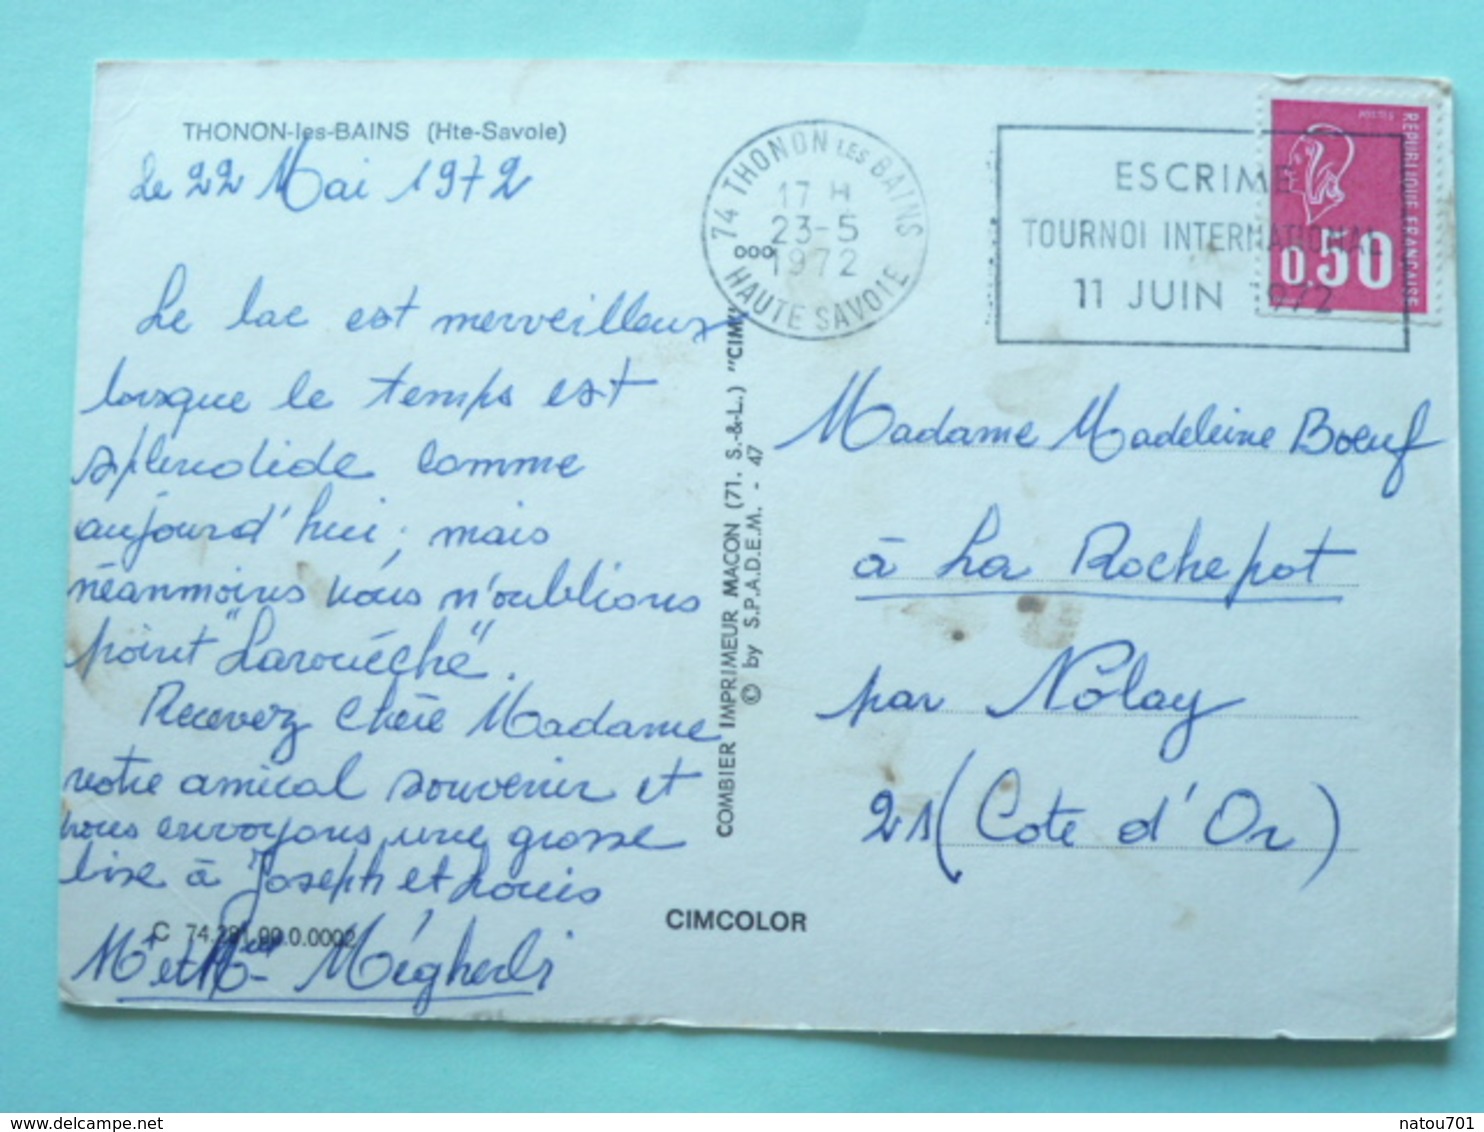 THONON-les-BAINS (Hte-Savoie)
Le 22 Mai 1972
Le lac est merveilleux
lorsque le temps est
splendide comme
aujourd'hui ; mais
néanmoins nous n'oublions
point "Larouéché".
Recevez chère Madame
notre amical souvenir et
nous envoyons une grosse
bise à Joseph et Louis
Mr et Mme Mégherdi
C 74.281.90.0.0002
COMBIER IMPRIMEUR MACON (71. S.-&-L.) "CIM"
© by S.P.A.D.E.M. - 47
CIMCOLOR
74 THONON LES BAINS
17 H
23-5
1972
HAUTE SAVOIE
ESCRIME
TOURNOI INTERNATIONAL
11 JUIN 1972
REPUBLIQUE FRANCAISE
0.50
Madame Madeleine Boeuf
à La Rochepot
par Nolay
21 (Cote d'Or)
natou701